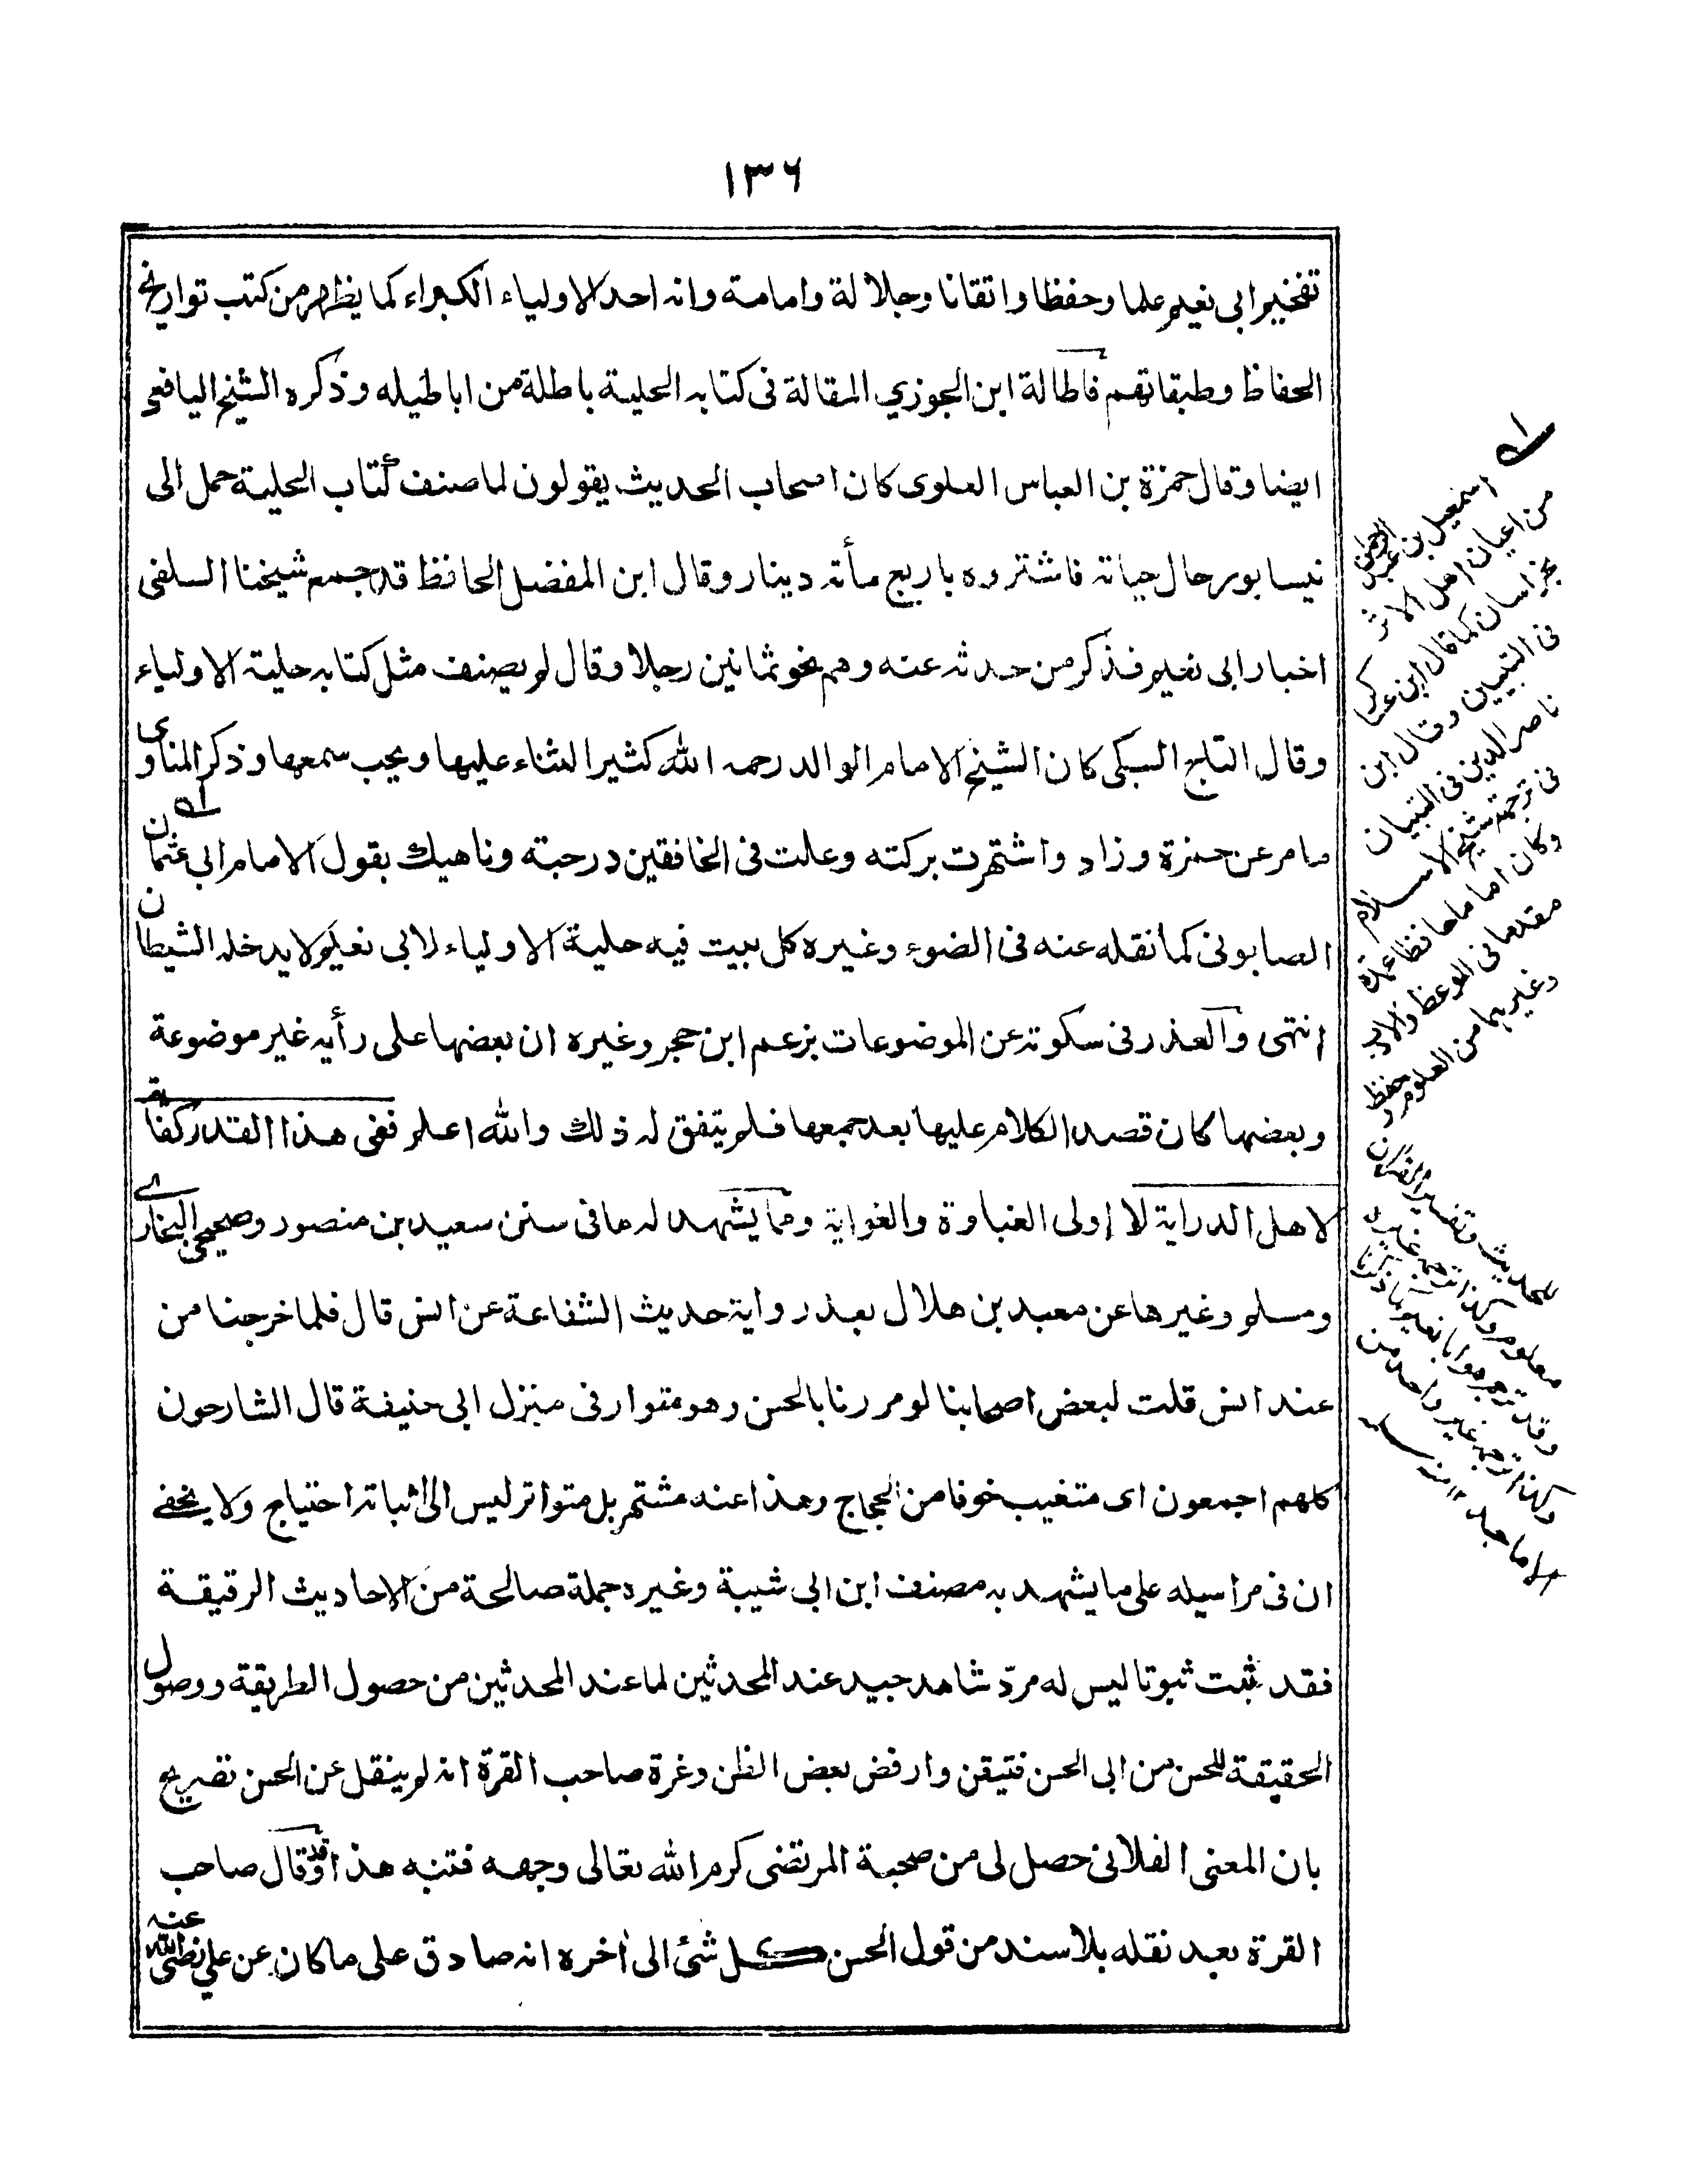 ١٣٦
تفخيم ابى نعيم علما وحفظا واتقانا وجلالة وامامة وانه احد الاولياء الكبراء كما يظهر من كتب تواريخ
الحفاظ وطبقاتهم فاطالة ابن الجوزي المقالة فى كتابه الحلية باطلة من اباطيله وذكره الشيخ اليافعى
ايضا وقال حمزة بن العباس العلوى كان اصحاب الحديث يقولون لما صنف كتاب الحلية حمل الى
نيسابور حال حياته فاشتروه باربع مأته دينار وقال ابن المفضل الحافظ قد جمع شيخنا السلفى
اخبار ابى نعيم فذكر من حدثه عنه وهم نحو ثمانين رجلا وقال لم يصنف مثل كتابه حلية الاولياء
وقال التاج السبكى كان الشيخ الامام الوالد رحمه الله كثير الثناء عليها ويحب سمعها وذكر المناوى
ما مر عن حمزة وزاد واشتهرت بركته وعلت فى الخافقين درجته وناهيك بقول الامام ابى عثمان
الصابونى كما نقله عنه فى الضوء وغيره كل بيت فيه حلية الاولياء لابى نعيم لا يدخله الشيطان
انتهى والعذر فى سكوته عن الموضوعات بزعم ابن حجر وغيره ان بعضها على رأيه غير موضوعة
وبعضها كان قصد الكلام عليها بعد جمعها فلم يتفق له ذلك والله اعلم ففى هذا القدر كفاية
لاهل الدراية لا اولى الغباوة والغواية ومما يشهد له ما فى سنن سعيد بن منصور وصحيحى البخارى
ومسلم وغيرها عن معبد بن هلال بعد رواية حديث الشفاعة عن انس قال فلما خرجنا من
عند انس قلت لبعض اصحابنا لو مررنا بالحسن وهو متوار فى منزل ابى خليفة قال الشارحون
كلهم اجمعون اى متغيب خوفا من الحجاج وهذا عنه مشتهر بل متواتر ليس الى اثباته احتياج ولا يخفى
ان فى مراسيله على ما يشهد به مصنف ابن ابى شيبة وغيره جملة صالحة من الاحاديث الرقيقة
فقد ثبت ثبوتا ليس له مردّ شاهد جيد عند المحدثين لما عند المحدثين من حصول الطريقة ووصول
الحقيقة للحسن من ابى الحسن فتيقن وارفض بعض الظن وغرة صاحب القرة انه لم ينقل عن الحسن تصريح
بان المعنى الفلانى حصل لى من صحبة المرتضى كرم الله تعالى وجهه فتنبه هذا وقد قال صاحب
القرة بعد نقله بلا سند من قول الحسن كل شئ الى اخره انه صادق على ما كان عن على رضى الله عنه
اسمعيل بن عبد الرحمن
من اعيان اهل الاثر
بخراسان كما قال ابن عساكر
فى التبيين وقال ابن
ناصر الدين فى التبيان
فى ترجمة شيخ الاسلام
وكان اماما حافظا عمدة
مقدما فى الوعظ والادب
وغيرهما من العلوم وحفظ
للحديث وتفسير القرآن
معلوم وكذا ترجمه غيره
وكذا ترجمه غير واحد من
الاماجد ١٢ منه